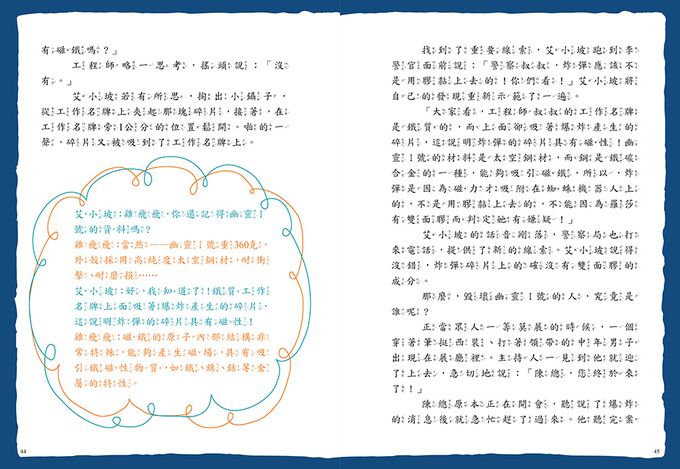 有磁鐵嗎？」
工程師略一思考，搖頭說：「沒
有。」
艾小坡若有所思，掏出小鑷子，
從工作名牌上夾起那塊碎片，接著，在
工作名牌旁1公分的位置鬆開。啪的一
聲，碎片又被吸到了工作名牌上。
艾小坡：雞飛飛，你還記得幽靈1
號的資料嗎？
雞飛飛：當然——幽靈1號重360克，
外殼採用高純度太空鋼材，耐衝
擊、耐磨損……
艾小坡：好，我知道了！鐵質工作
名牌上面吸著爆炸產生的碎片，
這說明炸彈的碎片具有磁性！
雞飛飛：磁鐵的原子內部結構非
常特殊，能夠產生磁場，具有吸
引鐵磁性物質，如鐵、鎳、鈷等金
屬的特性。
44
找到了重要線索，艾小坡跑到李
警官面前說：「警察叔叔，炸彈應該不
是用膠黏上去的！你們看！」艾小坡將
自己的發現重新示範了一遍。
「大家看，工程師叔叔的工作名牌
是鐵質的，而上面卻吸著爆炸產生的碎
片，這說明炸彈碎片具有磁性！幽
靈1號的材料是太空鋼材，而鋼是鐵碳
合金的一種，能夠吸引磁鐵，所以，炸
彈是因為磁力才吸附在蜘蛛機器人上
的，不是用膠黏上去的，不能因為羅莎
有雙面膠而判定她有嫌疑！」
艾小坡的話音剛落，警察局也打
來電話，提供了新的線索。艾小坡說得
沒錯，炸彈碎片上的確沒有雙面膠的
成分。
那麼，毀壞幽靈1號的人，究竟是
誰呢？
正當眾人一籌莫展的時候，一個
穿著筆挺西裝、打著領帶的中年男子
出現在展廳裡。主持人一見到他就迎
了上去，急切地說：「陳總，您終於來
了！」
陳總原本正在開會，聽說了爆炸
的消息後就急忙趕了過來。他聽完案
45